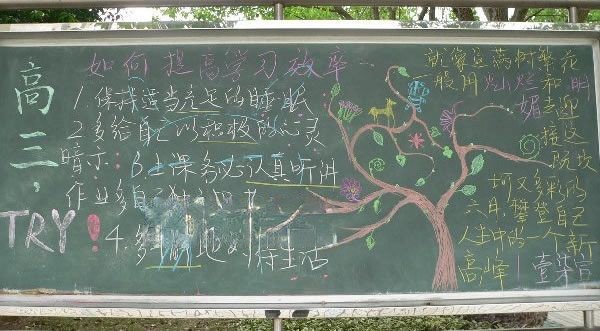 高三，
TRY！
如何提高学习效率
1.保持适当充足的睡眠
2.多给自己以积极的心灵
暗示：3.上课务必认真听伴
作业多自
4.多 地 待生活
就像是满树繁花
一般用灿烂和明
媚去迎接这
既坎
坷又多彩的
六月，攀登自己
人生中的一个新
高峰！宣